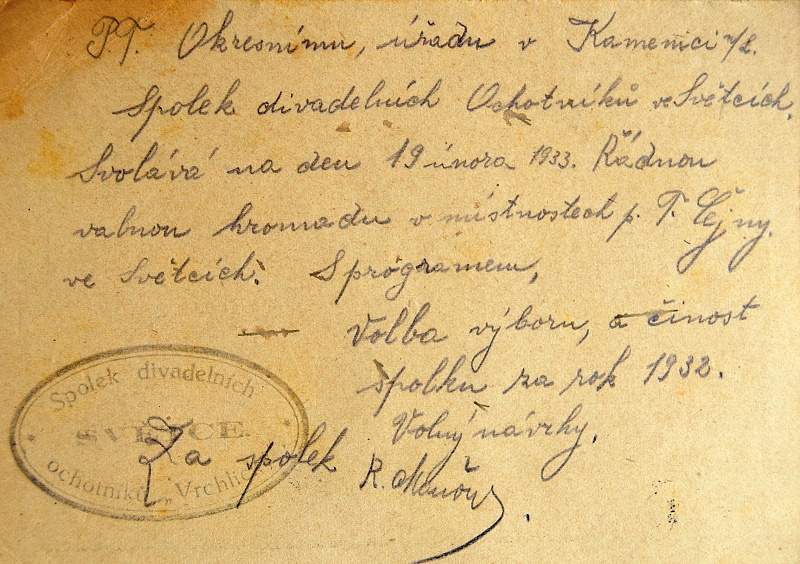 P.T. Okresnímu, úřadu v Kamenici n/L.
Spolek divadelních Ochotníků ve Světcích,
Svolává na den 19 února 1933. Řádnou
valnou hromadu v místnostech p. T. Čejny,
ve Světcích. S prógramem,
Volba výboru, a činost
spolku za rok 1932.
Volný návrhy.
Za spolek
R.
Spolek divadelních
ochotníků „Vrchlic